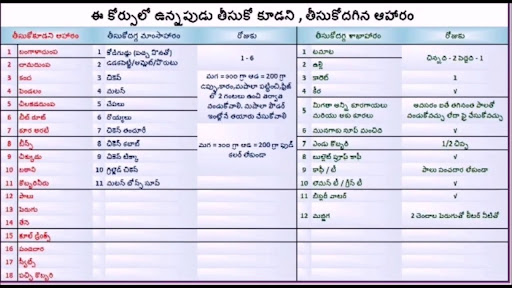 ఈ కోర్సులో ఉన్నపుడు తీసుకో కూడని , తీసుకోదగిన ఆహారం
తీసుకోకూడని ఆహారం
1 బంగాళాదుంప
2 చామదుంప
3 కంద
4 పెండలం
5 చిలకడదుంప
6 బీట్ రూట్
7 కూర అరటి
8 బీన్స్
9 చిక్కుడు
10 బఠాని
11 కొబ్బరినీరు
12 పాలు
13 పెరుగు
14 తేనె
15 కూల్ డ్రింక్స్
16 పంచదార
17 స్వీట్స్
18 పచ్చి కొబ్బరి
తీసుకోదగ్గ మాంసాహారం
1 కోడిగుడ్లు (పచ్చ సొనతో)
2 ఉడకపెట్టి/ఆమ్లెట్/పొరుటు
3 చికెన్
4 మటన్
5 చేపలు
6 రొయ్యలు
7 చికెన్ తందూరీ
8 చికెన్ కబాబ్
9 చికెన్ టిక్కా
10 గ్రిల్డ్ చికెన్
11 మటన్ బోన్స్ సూప్
రోజుకు
1 - 6
మగ = 300 గ్రా ఆడ = 200 గ్రా
ఉప్పు,కారం,మసాలా పట్టించి,ఫ్రిజ్
లో 2 గంటలు ఉంచి తర్వాత
వండుకోవాలి. మసాలా పౌడర్
ఇంట్లోనే తయారు చేసుకోవాలి
మగ = 300 గ్రా ఆడ = 200 గ్రా ఫుడ్
కలర్ లేకుండా
తీసుకోదగ్గ శాఖాహారం
1 టమాట
2 ఉల్లి
3 కారెట్
4 కీర
5 మిగతా అన్ని కూరగాయలు
మరియు ఆకు కూరలు
6 మునగాకు సూప్ మంచిది
7 ఎండు కొబ్బరి
8 బుల్లెట్ ప్రూఫ్ కాఫీ
9 కాఫీ / టీ
10 లెమన్ టీ / గ్రీన్ టీ
11 లిస్టరీ వాటర్
12 మజ్జిగ
రోజుకు
చిన్నది - 2 పెద్దది - 1
√
1
√
√
1/2 చిప్ప
√
పాలు పంచదార లేకుండా
√
√
2 చెంచాల పెరుగుతో లీటర్ నీటితో